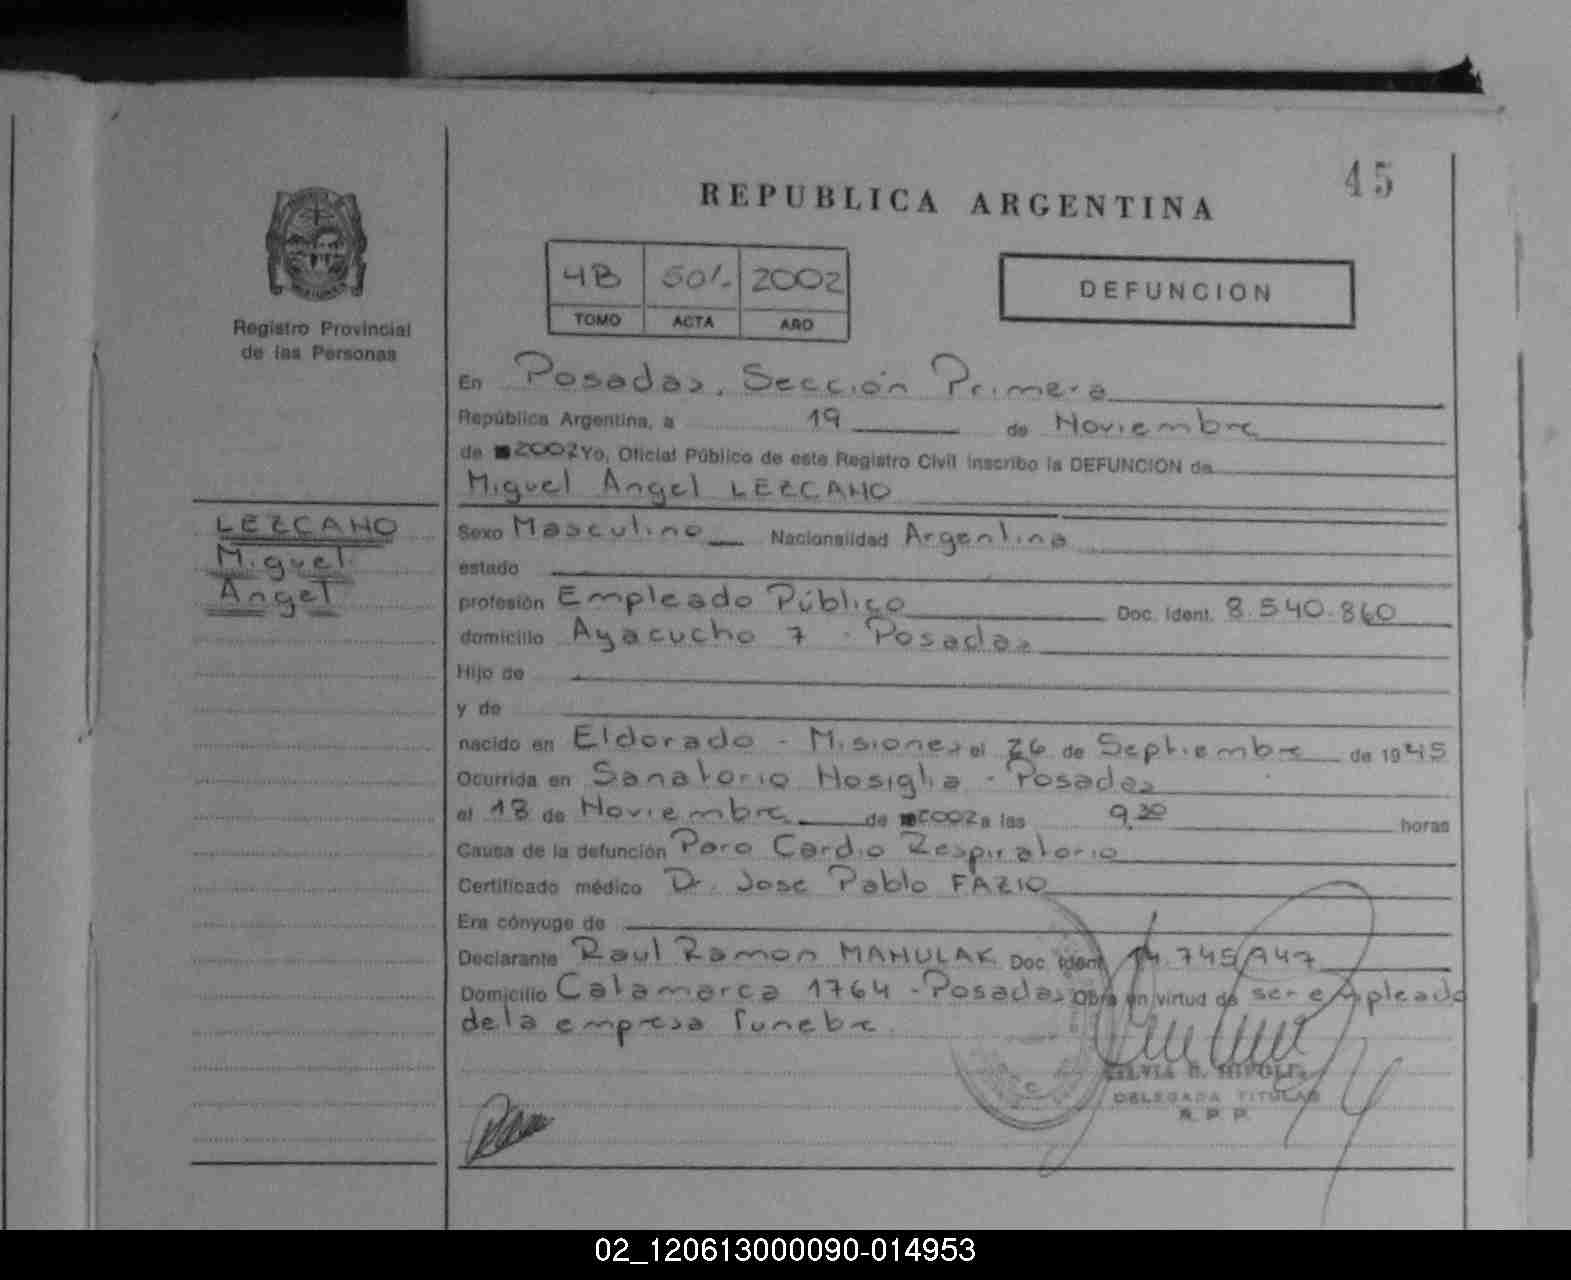 45
REPUBLICA ARGENTINA
4B 50/. 2002
TOMO ACTA AÑO
DEFUNCION
Registro Provincial
de las Personas
LEZCANO
Miguel
Angel
En Posadas, Sección Primera
República Argentina, a 19 de Noviembre
de 2002 Yo, Oficial Público de este Registro Civil inscribo la DEFUNCION de
Miguel Angel LEZCANO
Sexo Masculino Nacionalidad Argentina
estado
profesión Empleado Público Doc. Ident. 8.540.860
domicilio Ayacucho 7 - Posadas
Hijo de
y de
nacido en Eldorado - Misiones el 26 de Septiembre de 1945
Ocurrida en Sanatorio Nosiglia - Posadas
el 18 de Noviembre de 2002 a las 9,30 horas
Causa de la defunción Paro Cardio Respiratorio
Certificado médico Dr. Jose Pablo FAZIO
Era cónyuge de
Declarante Raul Ramon MAHULAK Doc Ident 14.745.947
Domicilio Catamarca 1764 - Posadas Obra en virtud de ser empleado
de la empresa funebre.
SILVIA
DELEGADA TITULAR
R. P. P.
02_120613000090-014953